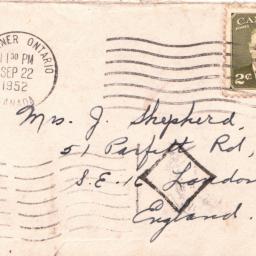 NER ONTARIO
1 30 PM
SEP 22
1952
CANADA
CAN
2¢
Mrs. J. Shepherd,
51 Parfett Rd,
S.E. 16 London
England.